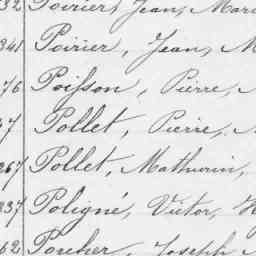 32 Poirier, Jean, Mari
341 Poirier, Jean, M
76 Poisson, Pierre,
7 Pollet, Pierre,
267 Pollet, Mathurin,
237 Poligné, Victor, H
62 Porcher, Joseph